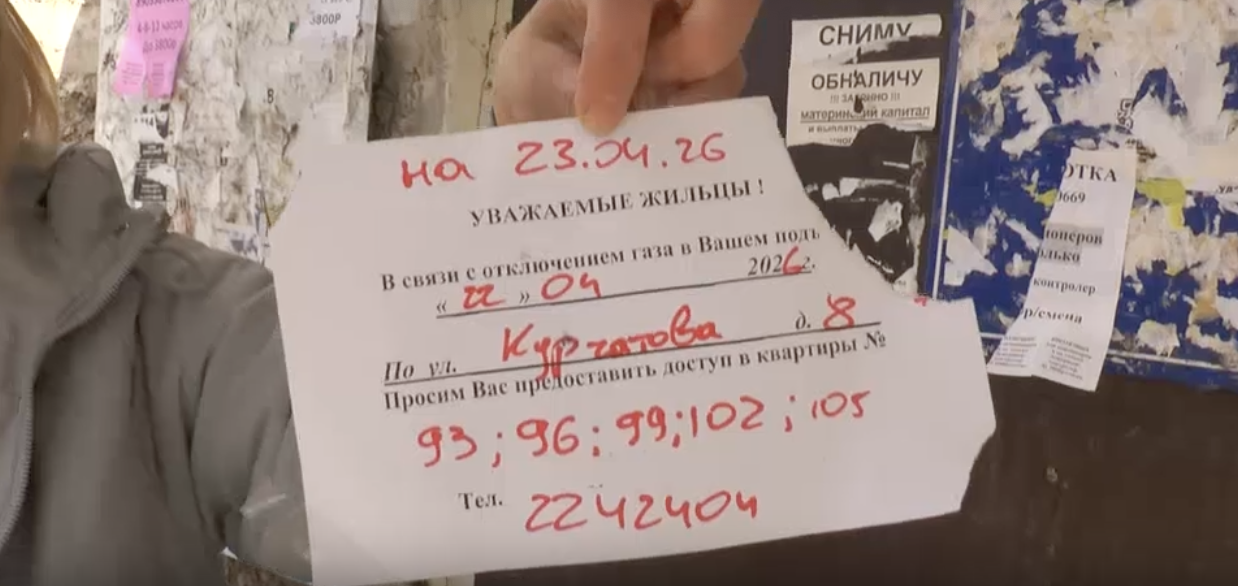 4-8-12 часов
До 3800р
3800Р
на 23.04.26
УВАЖАЕМЫЕ ЖИЛЬЦЫ !
В связи с отключением газа в Вашем подъ
« 22 » 04 2026г.
По ул. Курчатова д. 8
Просим Вас предоставить доступ в квартиры №
93 ; 96 ; 99; 102 ; 105
Тел. 2242404
СНИМУ
ОБНАЛИЧУ
материнский капитал
и выплаты
ОТКА
0669
контролер
р/смена